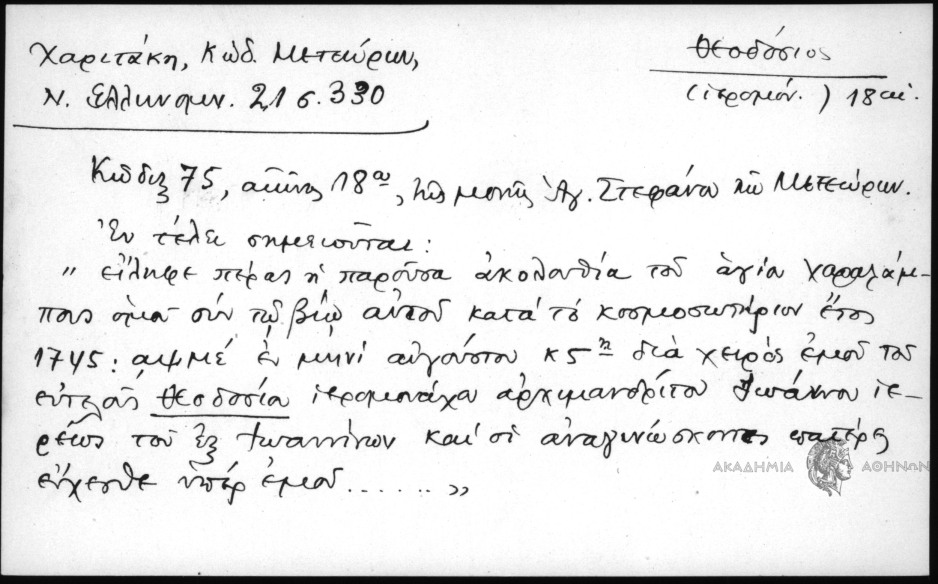 Χαριτάκη, Κώδ. Μετεώρων,
Ν. Ελληνομν. 21 σ. 330
Θεοδόσιος
(ἱερομόν.) 18 αἰ.
Κῶδιξ 75, αἰῶνος 18ου, τῆς μονῆς Ἁγ. Στεφάνου τῶν Μετεώρων.
Ἐν τέλει σημειοῦται:
„ εἴληφε πέρας ἡ παροῦσα ἀκολουθία τοῦ ἁγίου Χαραλάμ-
πους ὁμοῦ σύν τῷ βίῳ αὐτοῦ κατά τό κοσμοσωτήριον ἔτος
1745: αψμέ ἐν μηνί αὐγούστου κ5η διά χειρός ἐμοῦ τοῦ
εὐτελοῦς Θεοδοσίου ἱερομονάχου ἀρχιμανδρίτου Ἰωάννου ἱε-
ρέως τοῦ ἐξ Ἰωαννίνων καί οἱ ἀναγινώσκοντες πατέρες
εὔχεσθε ὑπέρ ἐμοῦ ...... „
ΑΚΑΔΗΜΙΑ ΑΘΗΝΩΝ